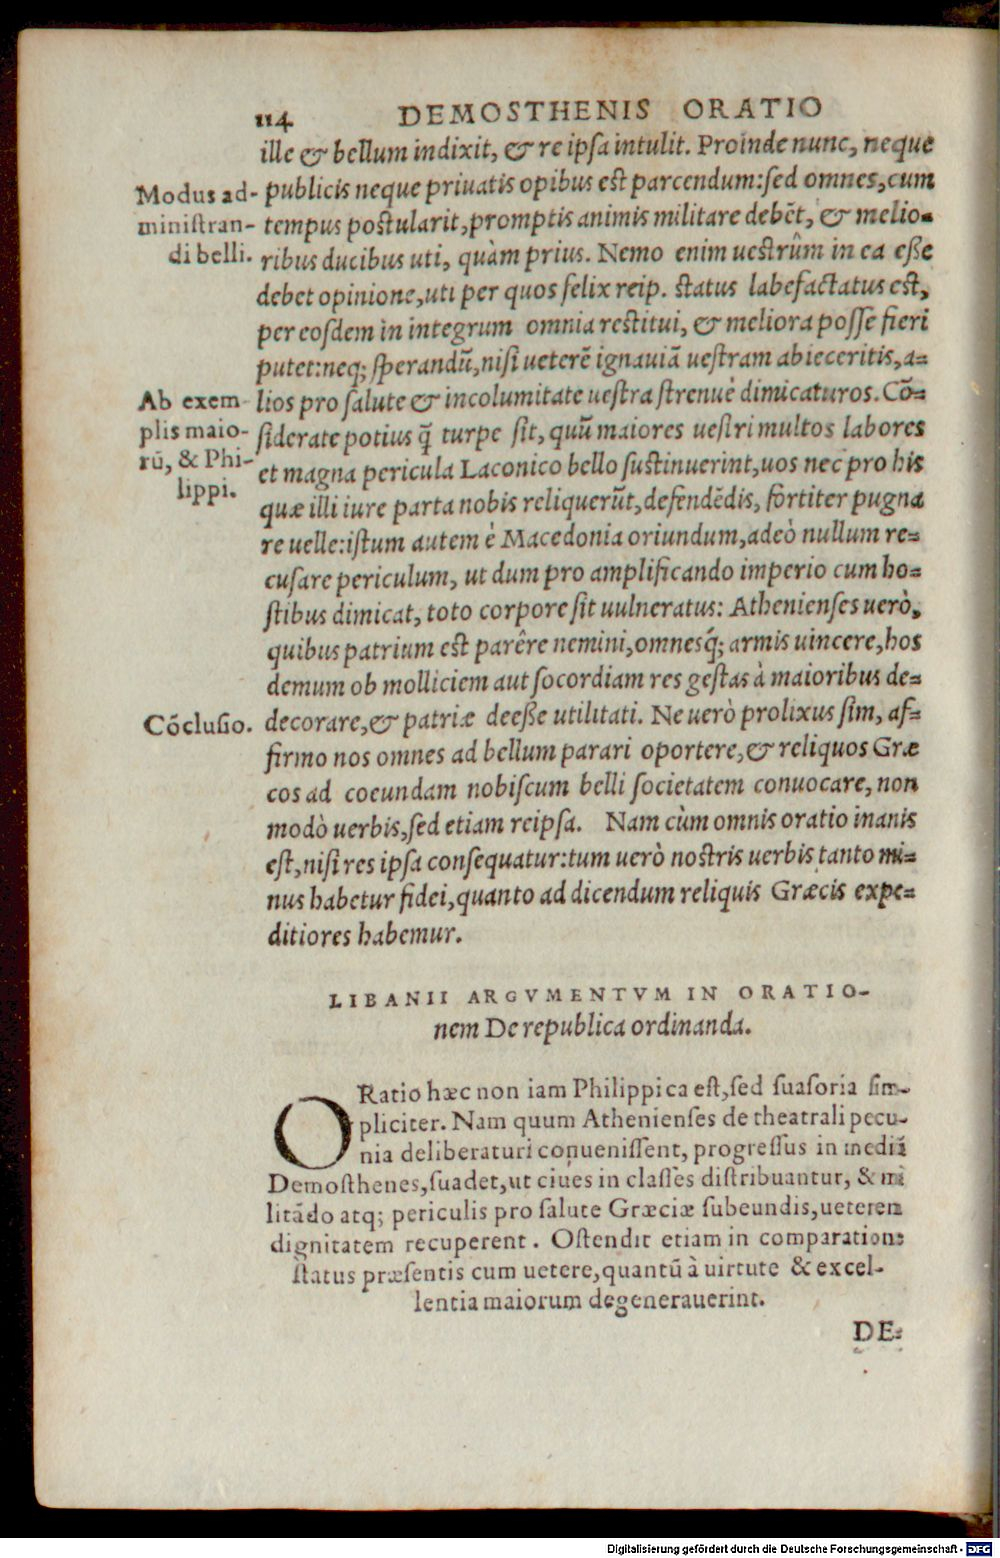 114 DEMOSTHENIS ORATIO
ille & bellum indixit, & re ipsa intulit. Proinde nunc, neque
Modus ad-
ministran-
di belli.
publicis neque priuatis opibus est parcendum: sed omnes, cum
tempus postularit, promptis animis militare debēt, & melio-
ribus ducibus uti, quàm prius. Nemo enim uestrûm in ea esse
debet opinione, uti per quos felix reip. status labefactatus est,
per eosdem in integrum omnia restitui, & meliora posse fieri
putet: neq; sperandū, nisi ueterē ignauiā uestram abieceritis, a-
Ab exem
plis maio-
rū, & Phi-
lippi.
lios pro salute & incolumitate uestra strenuè dimicaturos. Cō-
siderate potius q̃ turpe sit, quū maiores uestri multos labores
et magna pericula Laconico bello sustinuerint, uos nec pro his
quæ illi iure parta nobis reliquerūt, defendēdis, fortiter pugna
re uelle: istum autem è Macedonia oriundum, adeò nullum re-
cusare periculum, ut dum pro amplificando imperio cum ho-
stibus dimicat, toto corpore sit uulneratus: Athenienses uerò,
quibus patrium est parêre nemini, omnesq́; armis uincere, hos
demum ob molliciem aut socordiam res gestas à maioribus de-
Cōclusio.
decorare, & patriæ deesse utilitati. Ne uerò prolixus sim, af-
firmo nos omnes ad bellum parari oportere, & reliquos Græ
cos ad coeundam nobiscum belli societatem conuocare, non
modò uerbis, sed etiam reipsa. Nam cùm omnis oratio inanis
est, nisi res ipsa consequatur: tum uerò nostris uerbis tanto mi-
nus habetur fidei, quanto ad dicendum reliquis Græcis expe-
ditiores habemur.
LIBANII ARGVMENTVM IN ORATIO-
nem De republica ordinanda.
ORatio hæc non iam Philippica est, sed suasoria sim-
pliciter. Nam quum Athenienses de theatrali pecu-
nia deliberaturi conuenissent, progressus in mediū
Demosthenes, suadet, ut ciues in classes distribuantur, & mi
litādo atq; periculis pro salute Græciæ subeundis, ueterem
dignitatem recuperent. Ostendit etiam in comparatione
status præsentis cum uetere, quantū à uirtute & excel-
lentia maiorum degenerauerint.
DE-
Digitalisierung gefördert durch die Deutsche Forschungsgemeinschaft - DFG